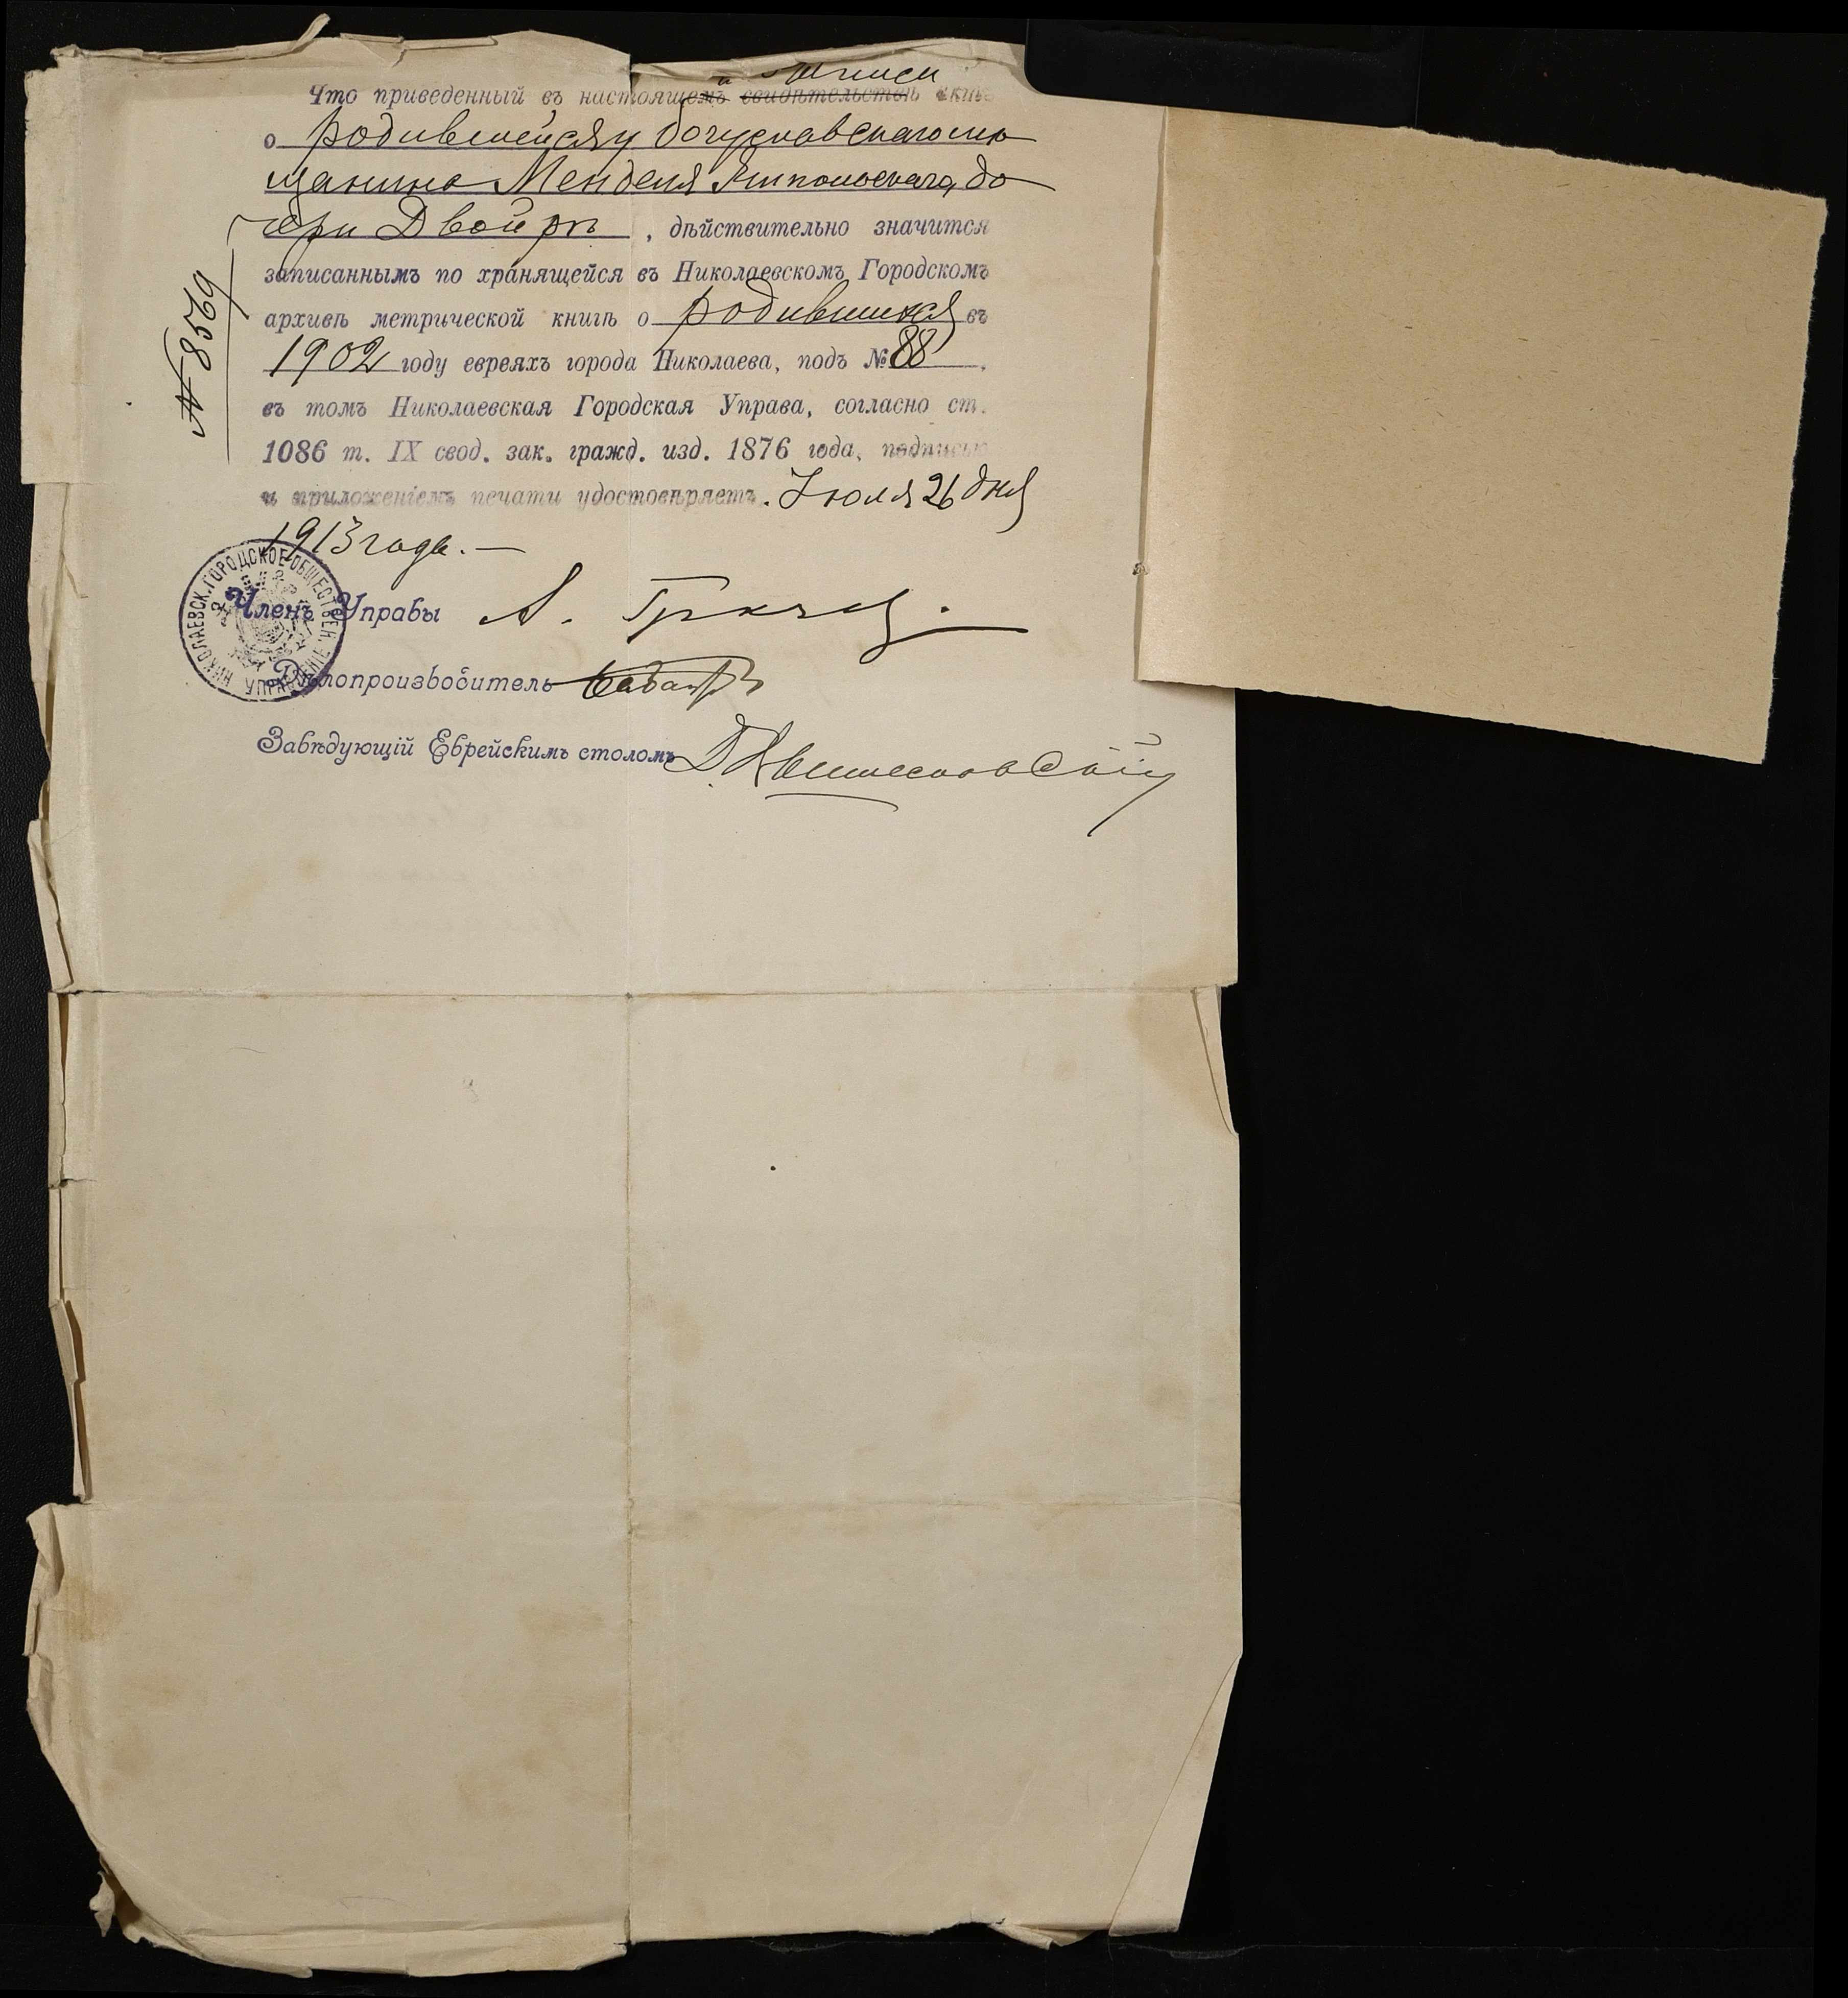 и записи
Что приведенный въ настоящемъ свидѣтельствѣ
о родившейся у богуславскаго мѣ
щанина Менделя Ямпольскаго, до
чери Двойрѣ, дѣйствительно значится
записаннымъ по хранящейся въ Николаевскомъ Городскомъ
архивѣ метрической книгѣ о родившихся въ
1902 году евреяхъ города Николаева, подъ № 88,
въ томъ Николаевская Городская Управа, согласно ст.
1086 т. IX свод. зак. гражд. изд. 1876 года, подписью
и приложеніемъ печати удостовѣряетъ. Іюля 26 дня
1913 года.—
Членъ Управы
Дѣлопроизводитель
Завѣдующій Еврейскимъ столомъ
№ 8569
НИКОЛАЕВСК. ГОРОДСКОЕ ОБЩЕСТВЕН. УПРАВЛЕНІЕ